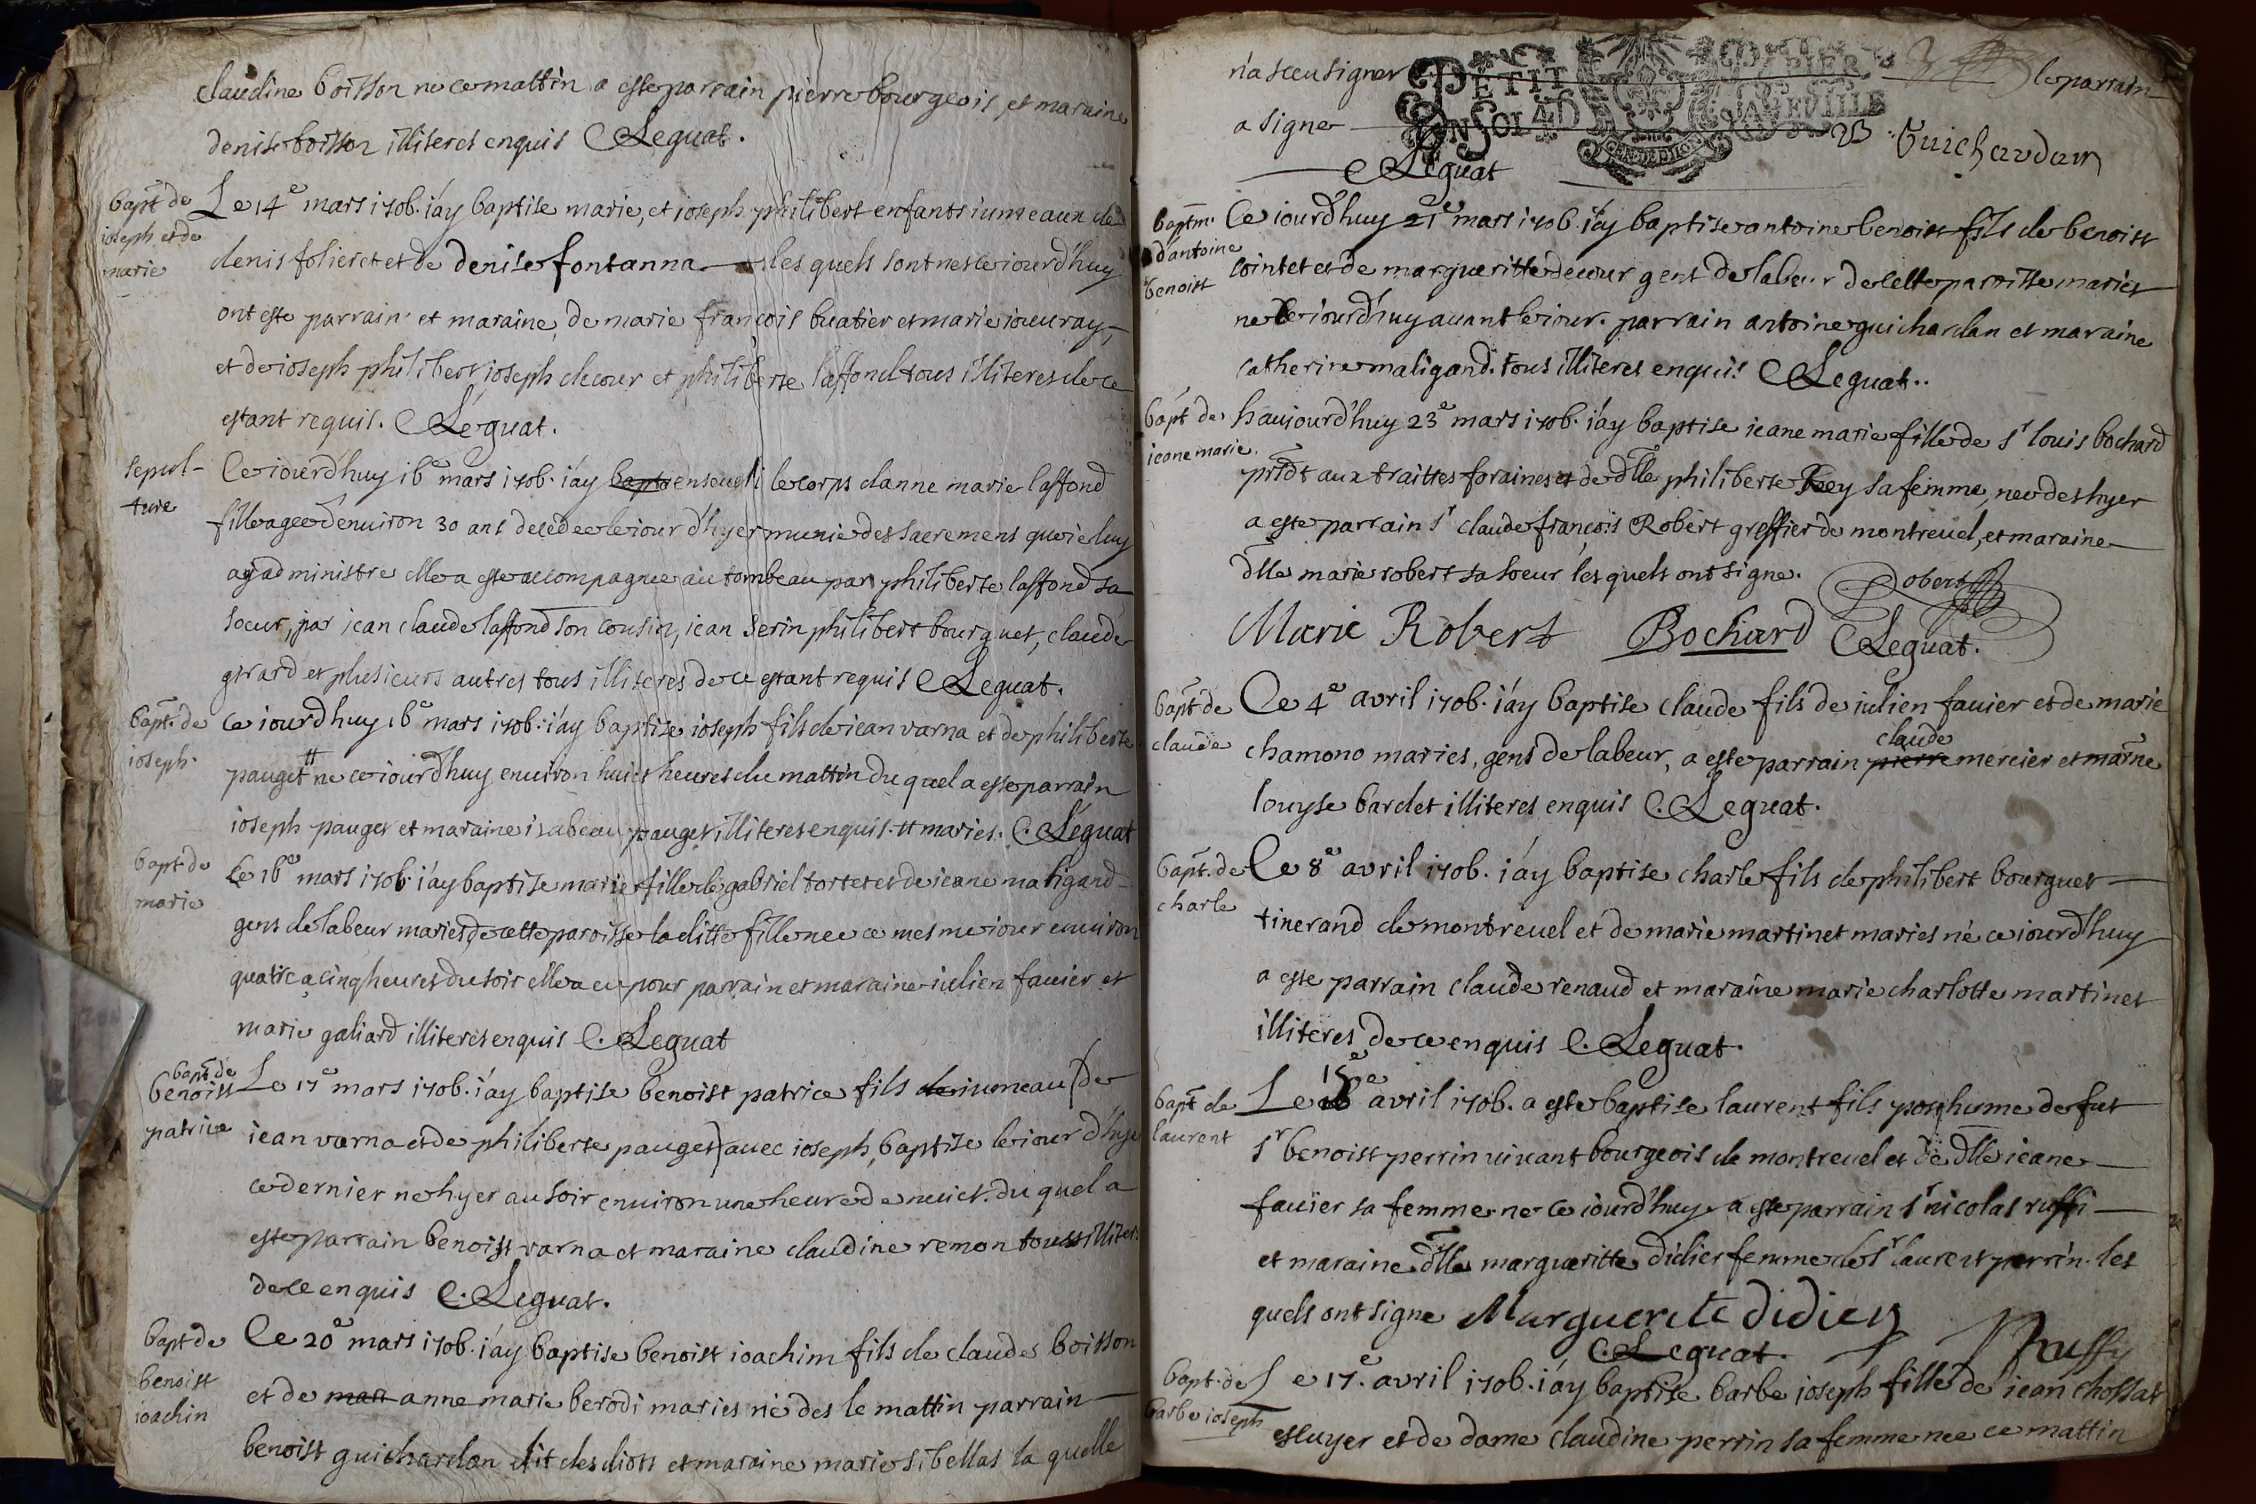 claudine boisson ne ce mattin a este parrain pierre bourgeois, et maraine
denise boisson illiteres enquis C Leguat.
bapt de
ioseph et de
marie
Le 14e mars 1706. i'ay baptise marie, et ioseph philibert enfants iumeaux de
denis folieret et de denise fontanna les quels sont nes ce iourd'huy
ont este parrain et maraine, de marie francois buatier et marie ioeuray,
et de ioseph philibert ioseph decour et philiberte laffond tous illiteres de ce
estant requis. C Leguat.
sepul-
ture
Ce iourd'huy 16e mars 1706. i'ay bapt enseueli le corps danne marie laffond
fille agee d'enuiron 30 ans decedee le iour d'hyer munie des sacremens que ie luy
ay administre elle a este accompagnee au tombeau par philiberte laffond sa
soeur, par iean claude laffond son cousin, iean serin philibert bourguet, claude
girard et plusieurs autres tous illiteres de ce estant requis C Leguat.
bapt. de
ioseph.
Ce iourdhuy 16e mars 1706. i'ay baptise ioseph fils de iean varna et de philiberte
pauget tt ne ce iourd'huy enuiron huict heures du mattin du quel a este parrain
ioseph pauget et maraine isabeau pauget illiteres enquis. tt maries. C. Leguat
bapt. de
marie
Le 16e mars 1706. i'ay baptise marie fille de gabriel tortet et de ieane maligand
gens de labeur maries de cette paroisse la ditte fille nee ce mesme iour enuiron
quatre a cinq heures du soir elle a eu pour parrain et maraine iulien fauier et
marie galiard illiteres enquis C. Leguat
bapt. de
benoist
patrice
Le 17e mars 1706. i'ay baptise benoist patrice fils de iumeau (de
iean varna et de philiberte pauget) avec ioseph, baptise le iour d'hyer
ce dernier ne hyer au soir enuiron une heure de nuict. du quel a
este parrain benoist varna et maraine claudine remon tous illiteres
de ce enquis C. Leguat.
bapt de
benoist
ioachin
Ce 20e mars 1706. i'ay baptise benoist ioachim fils de claude boisson
et de mari anne marie berodi maries né des le mattin parrain
benoist guichardan dit des diots et maraine marie sibellas la quelle
n'a sceu signer le parrain
a signe B Guichardan
C Leguat
PETIT PAPIER
UN SOL 4D LA FEUILLE
GEN DE DIJON
baptm.
d'antoine
benoist
Ce iourd'huy 21e mars 1706. i'ay baptise antoine benoist fils de benoist
cointet et de margueritte decour gens de labeur de cette parroisse maries
ne ce iourd'huy auant le iour. parrain antoine guichardan et maraine
catherine maligand. tous illiteres enquis C Leguat.
bapt de
ieane marie.
haujourd'huy 23e mars 1706. i'ay baptise ieane marie fille de sr louis bochard
prsdt aux traittes foraines et de dlle philiberte Rey sa femme, nee des hyer
a este parrain sr claude francois Robert greffier de montreuel, et maraine
dlle marie robert sa soeur les quels ont signe. Robert
Marie Robert Bochard C Leguat.
bapt de
claude
Ce 4e avril 1706. i'ay baptise claude fils de iulien fauier et de marie
chamono maries, gens de labeur, a este parrain pierre claude mercier et marne
louyse bardet illiteres enquis C. Leguat.
bapt. de
charle
Ce 8e avril 1706. i'ay baptise charle fils de philibert bourguet
tinerand de montreuel et de marie martinet maries né ce iourd'huy
a este parrain claude renaud et maraine marie charlotte martinet
illiteres de ce enquis C. Leguat.
bapt de
laurent
Le 15e avril 1706. a este baptise laurent fils posthume de fut
sr benoist perrin uiuant bourgeois de montreuel et de dlle ieane
fauier sa femme ne ce iourd'huy a este parrain sr nicolas ruffi
et maraine dlle margueritte didier femme de sr laurent perrin. les
quels ont signe Marguerite didier
C Leguat. Ruffy
bapt. de
barbe ioseph
Le 17e. avril 1706. i'ay baptise barbe ioseph fille de iean chossat
escuyer et de dame claudine perrin sa femme nee ce mattin